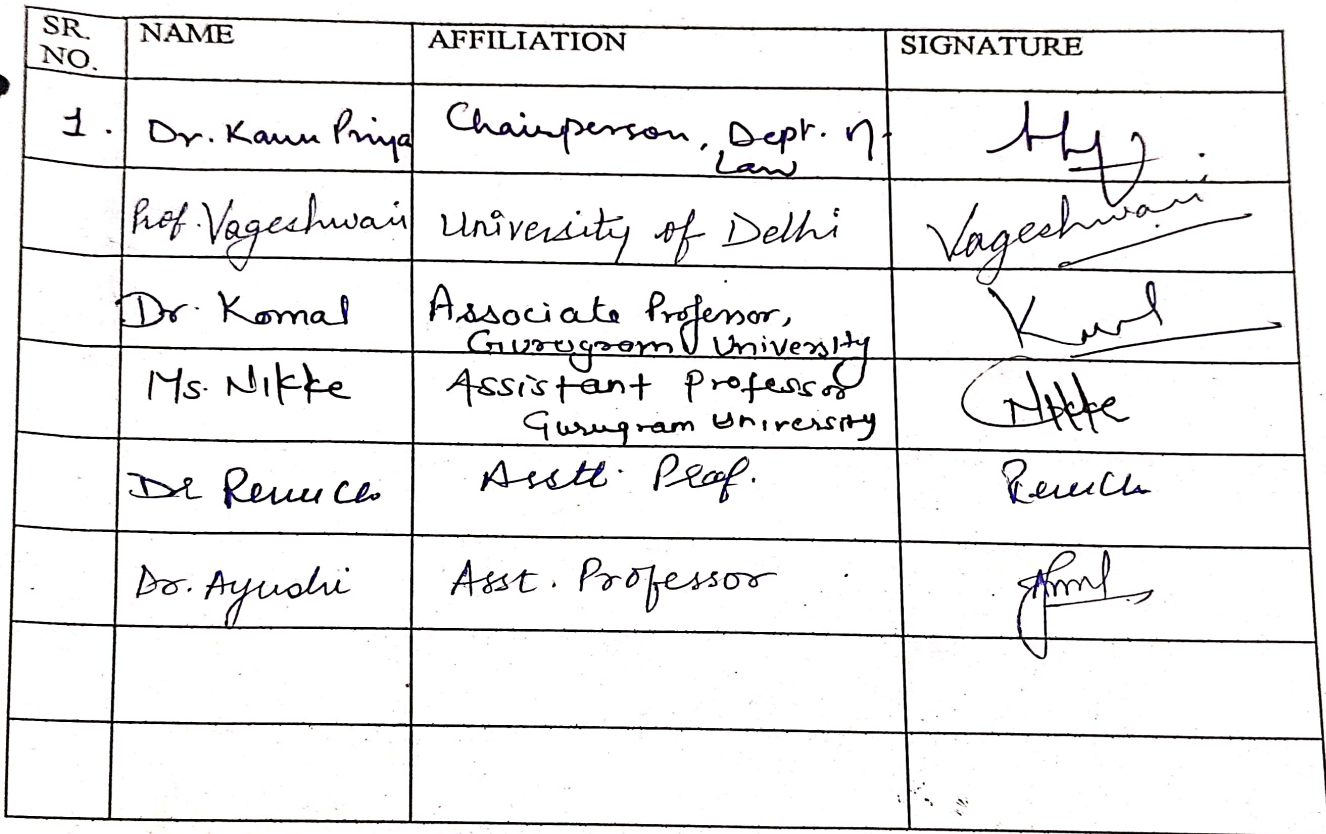 SR. NO. NAME AFFILIATION SIGNATURE
1. Dr. Kanu Priya Chairperson, Dept. of
Law
Prof. Vageshwari University of Delhi Vageshwari
Dr. Komal Associate Professor,
Gurugram University
Ms. Nikke Assistant Professor Nikke
Gurugram University
Dr Asstt. Prof.
Dr. Ayushi Asst. Professor